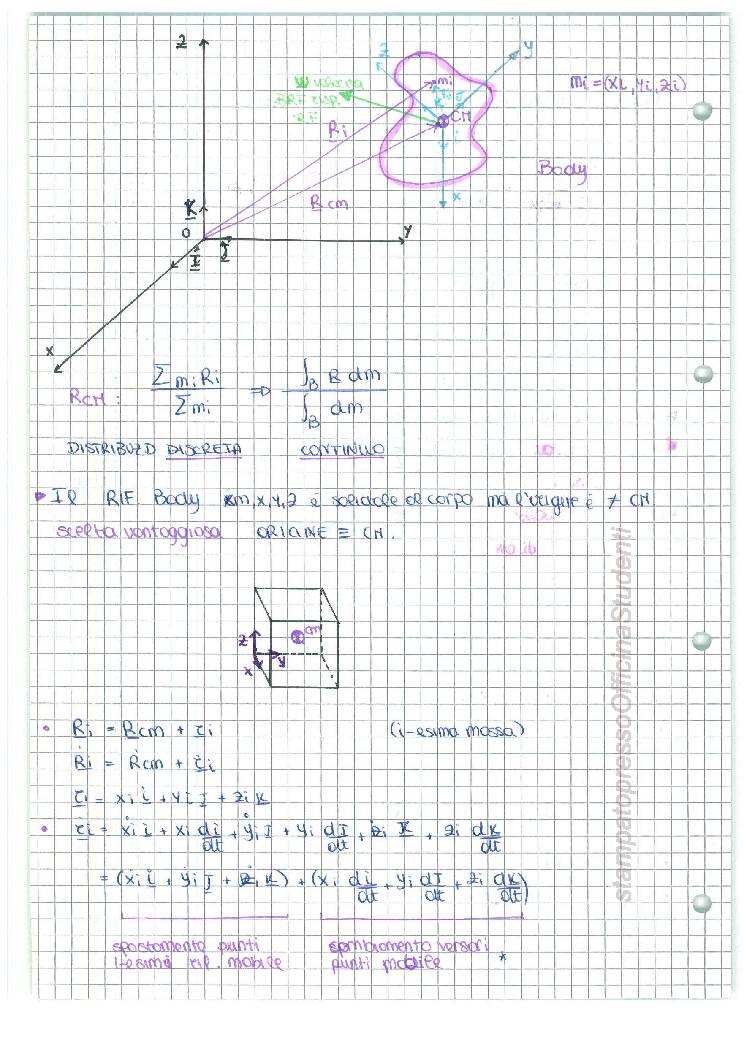 z
z
y
mi
mi = (xi, yi, zi)
W
BRF risp.
RF
CM
Ri
Body
Rcm
x
K
O
y
I
J
x
RCM: Σ mi Ri / Σ mi ⇒ ∫B R dm / ∫B dm
DISTRIBUZ. DISCRETA CONTINUO
Il RIF. Body cm, x, y, z è solidale al corpo ma l'origine è ≠ CM
scelta vantaggiosa ORIGINE ≡ CM.
z
cm
y
x
• Ri = Rcm + ri (i-esima massa)
Ṙi = Ṙcm + ṙi
ri = xi i + yi J + zi K
• ṙi = ẋi i + xi di/dt + ẏi J + yi dJ/dt + żi K + zi dK/dt
= (ẋi i + ẏi J + żi K) + (xi di/dt + yi dJ/dt + zi dK/dt)
spostamento punti cambiamento versori
i-esima rif. mobile punti mobile *
stampatopressoOfficinaStudenti